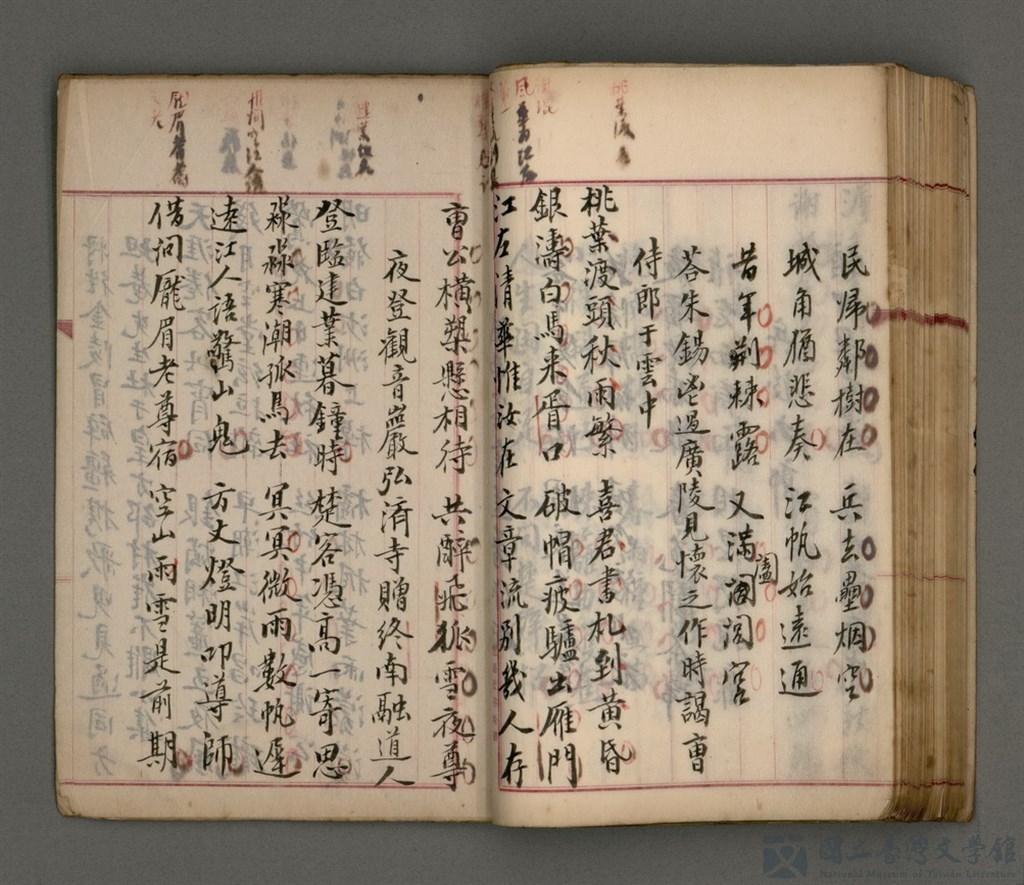 民歸鄰樹在 兵去壘烟空
城角猶悲奏 江帆始遠通
昔年荆棘露 又滿閭宮
盍
荅朱錫鬯過廣陵見懷之作時謁曹
侍郎于雲中
桃葉渡頭秋雨繁 喜君書札到黄昏
銀濤白馬来胥口 破帽疲驢出雁門
江左清華惟汝在 文章流别幾人存
曹公橫槊懸相待 共醉飛狐雪夜尊
夜登觀音巖弘済寺贈終南融道人
登臨建葉暮鐘時 楚客憑高一寄思
淼淼寒潮孤鳥去 冥冥微雨數帆遲
遠江人語驚山鬼 方丈燈明叩導師
借问厖眉老尊宿 空山雨雪是前期
國立臺灣文學館
National Museum of Taiwan Literature